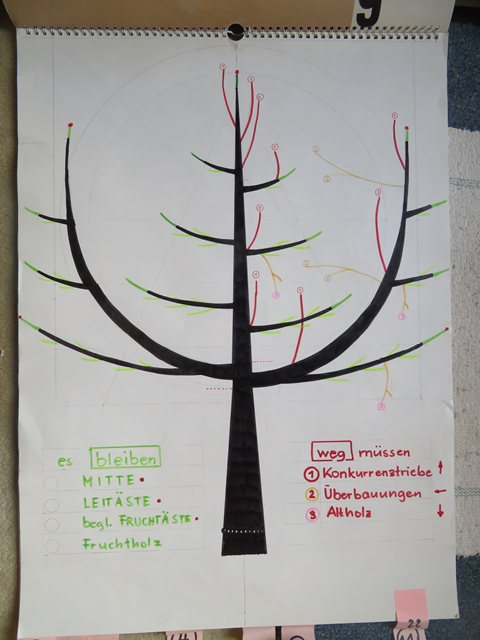 9
es bleiben
MITTE
LEITÄSTE
begl. FRUCHTÄSTE
Fruchtholz
weg müssen
1 Konkurrenztriebe ↑
2 Überbauungen ←
3 Altholz ↓
22